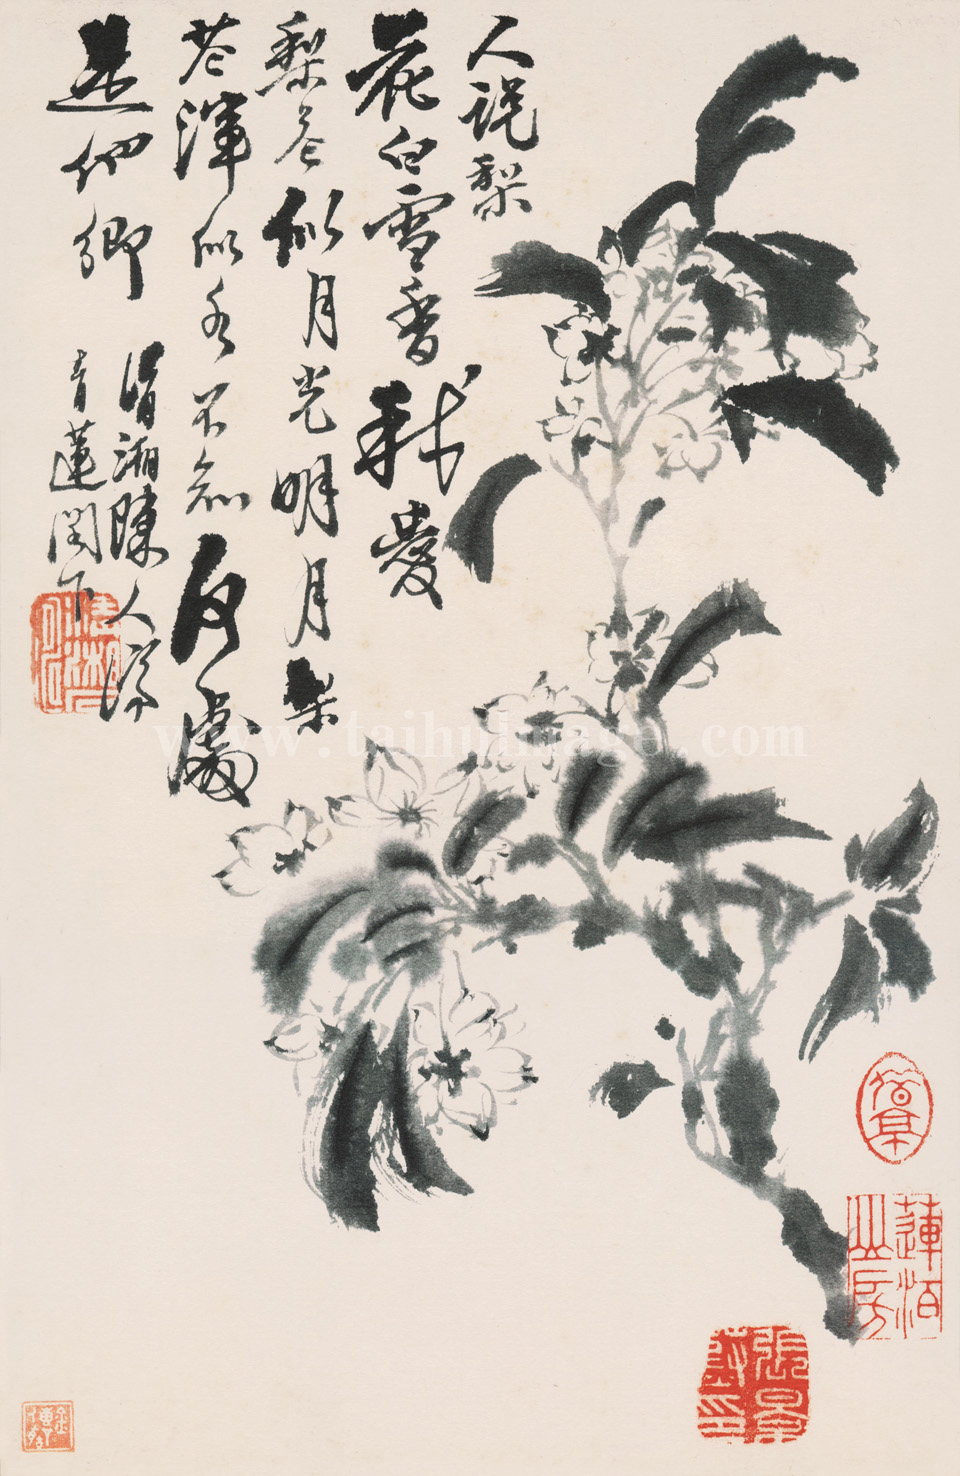 人説梨
花白雪香我愛
梨花似月光明月梨
花渾似水不知何處
是他鄉
清湘陳人濟
青蓮閣下
www.taihuimage.com